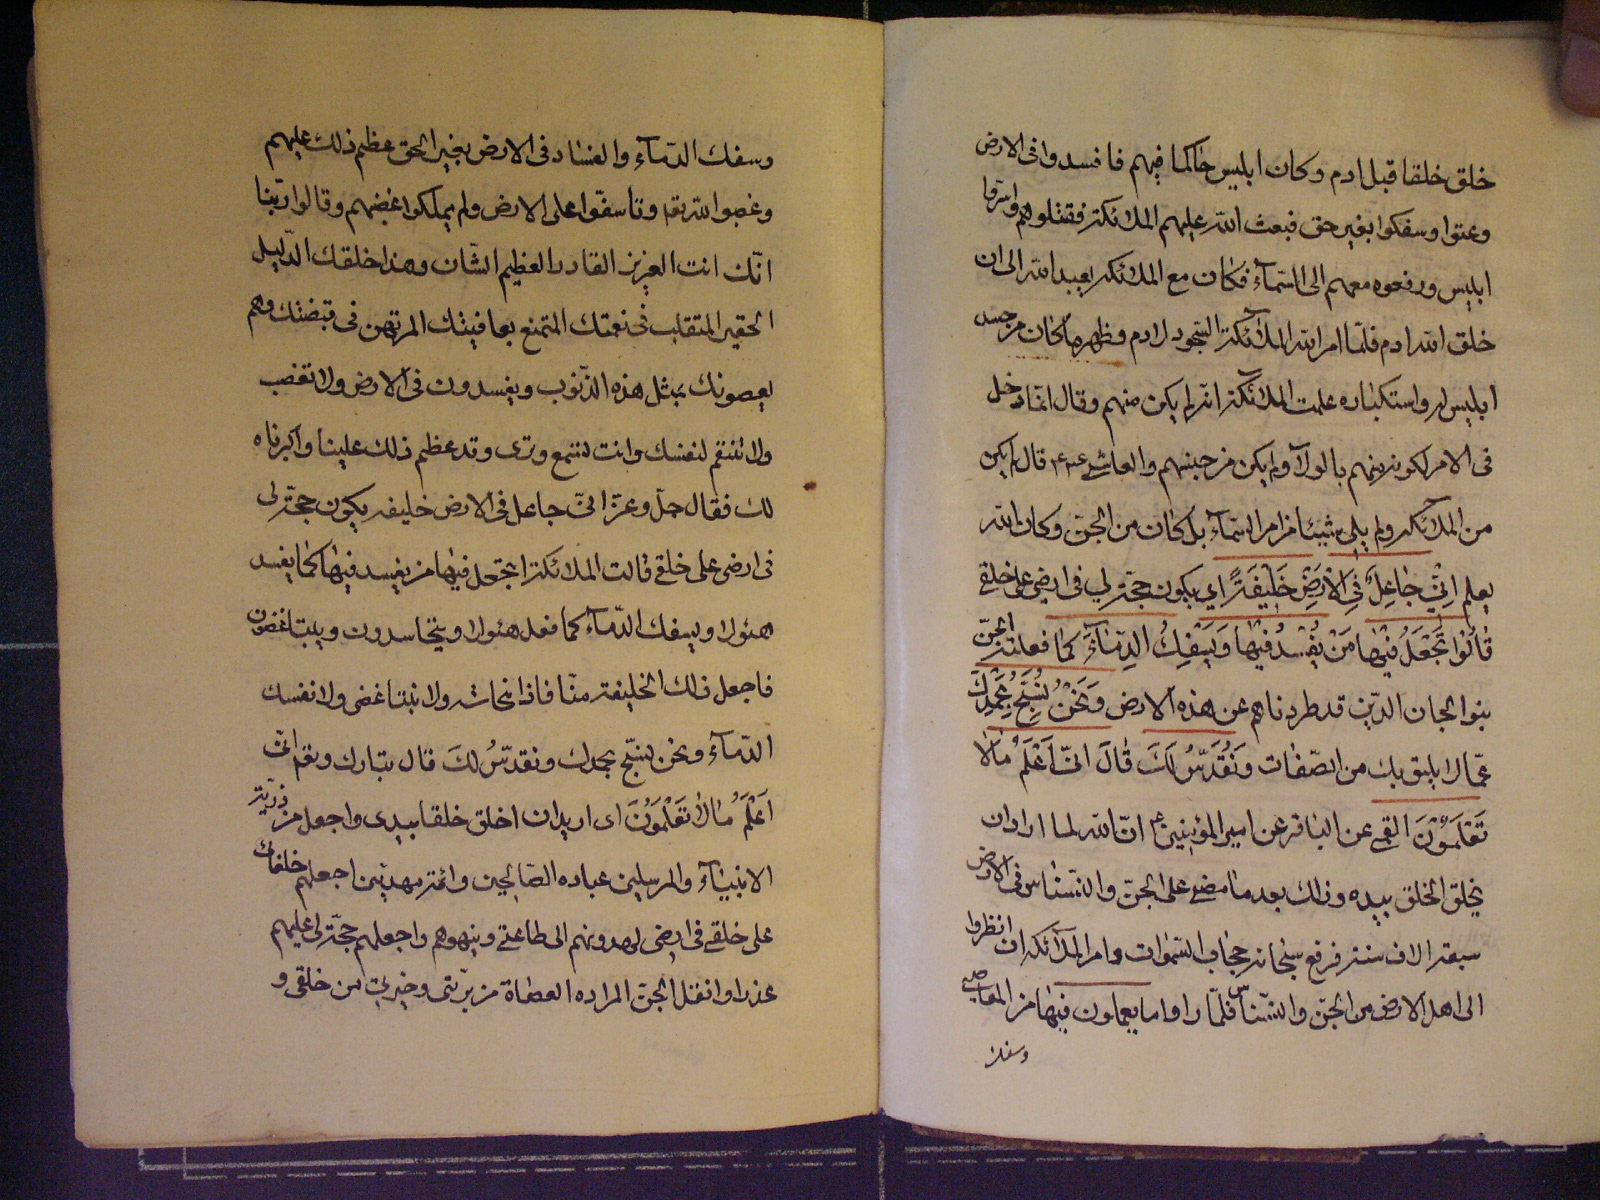 خلق خلقا قبل ادم وكان ابليس حاكما فيهم فافسدوا فى الارض
وعتوا وسفكوا بغير حق فبعث الله عليهم الملائكة فقتلوهم واسروا
ابليس ورفعوه معهم الى السمآء فكان مع الملائكة يعبد الله الى ان
خلق الله ادم فلما امر الله الملائكة السجود لادم وظهر ما كان من حسد
ابليس له واستكباره علمت الملائكة انه لم يكن منهم وقال انما دخل
فى الامر لكونه منهم بالولآء ولم يكن من جنسهم والعياشى عنه ع قال لم يكن
من الملائكة ولم يلى شيئا من امر السمآء بل كان من الجن وكان الله
يعلم اِنّى جٰاعِلٌ فِى الْاَرْضِ خَليفَةً اي يكون حجة لي فى ارضى على خلقى
قٰالُوا تَجْعَلُ فيهٰا مَنْ يُفْسِدُ فيهٰا وَيَسْفِكُ الدِّمٰآءَ كما فعلته الجن
بنو الجان الذين قد طردناهم عن هذه الارض وَنَحْنُ نُسَبِّحُ بِحَمْدِكَ
عما لا يليق بك من الصفات وَنُقَدِّسُ لَكَ قٰالَ انّى اَعْلَمُ مٰالا
تَعْلَمُونَ القمى عن الباقر عن امير المؤمنين ع ان الله لما اراد ان
يخلق الخلق بيده وذلك بعد ما مضى على الجن والنسناس فى الارض
سبعة الاف سنة فرفع سبحانه حجاب السموات وامر الملائكة ان انظروا
الى اهل الارض من الجن والنسناس فلما راوا ما يعملون فيها من المعاصى
وسفك
وسفك الدمآء والفساد فى الارض بغير الحق عظم ذلك عليهم
وغضبوا لله تعم وتأسفوا على الارض ولم يملكوا غضبهم وقالوا ربنا
انك انت العزيز القادر العظيم الشان وهذا خلقك الذليل
الحقير المتقلب فى نعمتك المتمتع بعافيتك المرتهن فى قبضتك وهم
يعصونك بمثل هذه الذنوب ويفسدون فى الارض ولا تغضب
ولا تنتقم لنفسك وانت تسمع وترى وقد عظم ذلك علينا واكبرناه
لك فقال جل وعز انى جاعل فى الارض خليفه يكون حجة لى
فى ارضى على خلقى قالت الملائكة اتجعل فيها من يفسد فيها كما يفسد
هئولاء ويسفك الدمآء كما فعل هئولاء ويتحاسدون ويتباغضون
فاجعل ذلك الخليفة منا فاذا نتحاسد ولا نتباغض ولا نفسك
الدمآء ونحن نسبح بحمدك ونقدّسُ لكَ قال تبارك وتعم انى
اَعْلَمُ مٰالا تَعْلَمُونَ اى اريد ان اخلق خلقا بيدى واجعل من ذريته
الانبيآء والمرسلين عباده الصالحين وائمة مهديين اجعلهم خلفاء
على خلقى فى ارضى يهدونهم الى طاعتى وينهوهم واجعلهم حجة لى عليهم
عذرا وانقل الجن المراده العصاة من بريتى وخيرتى من خلقى و